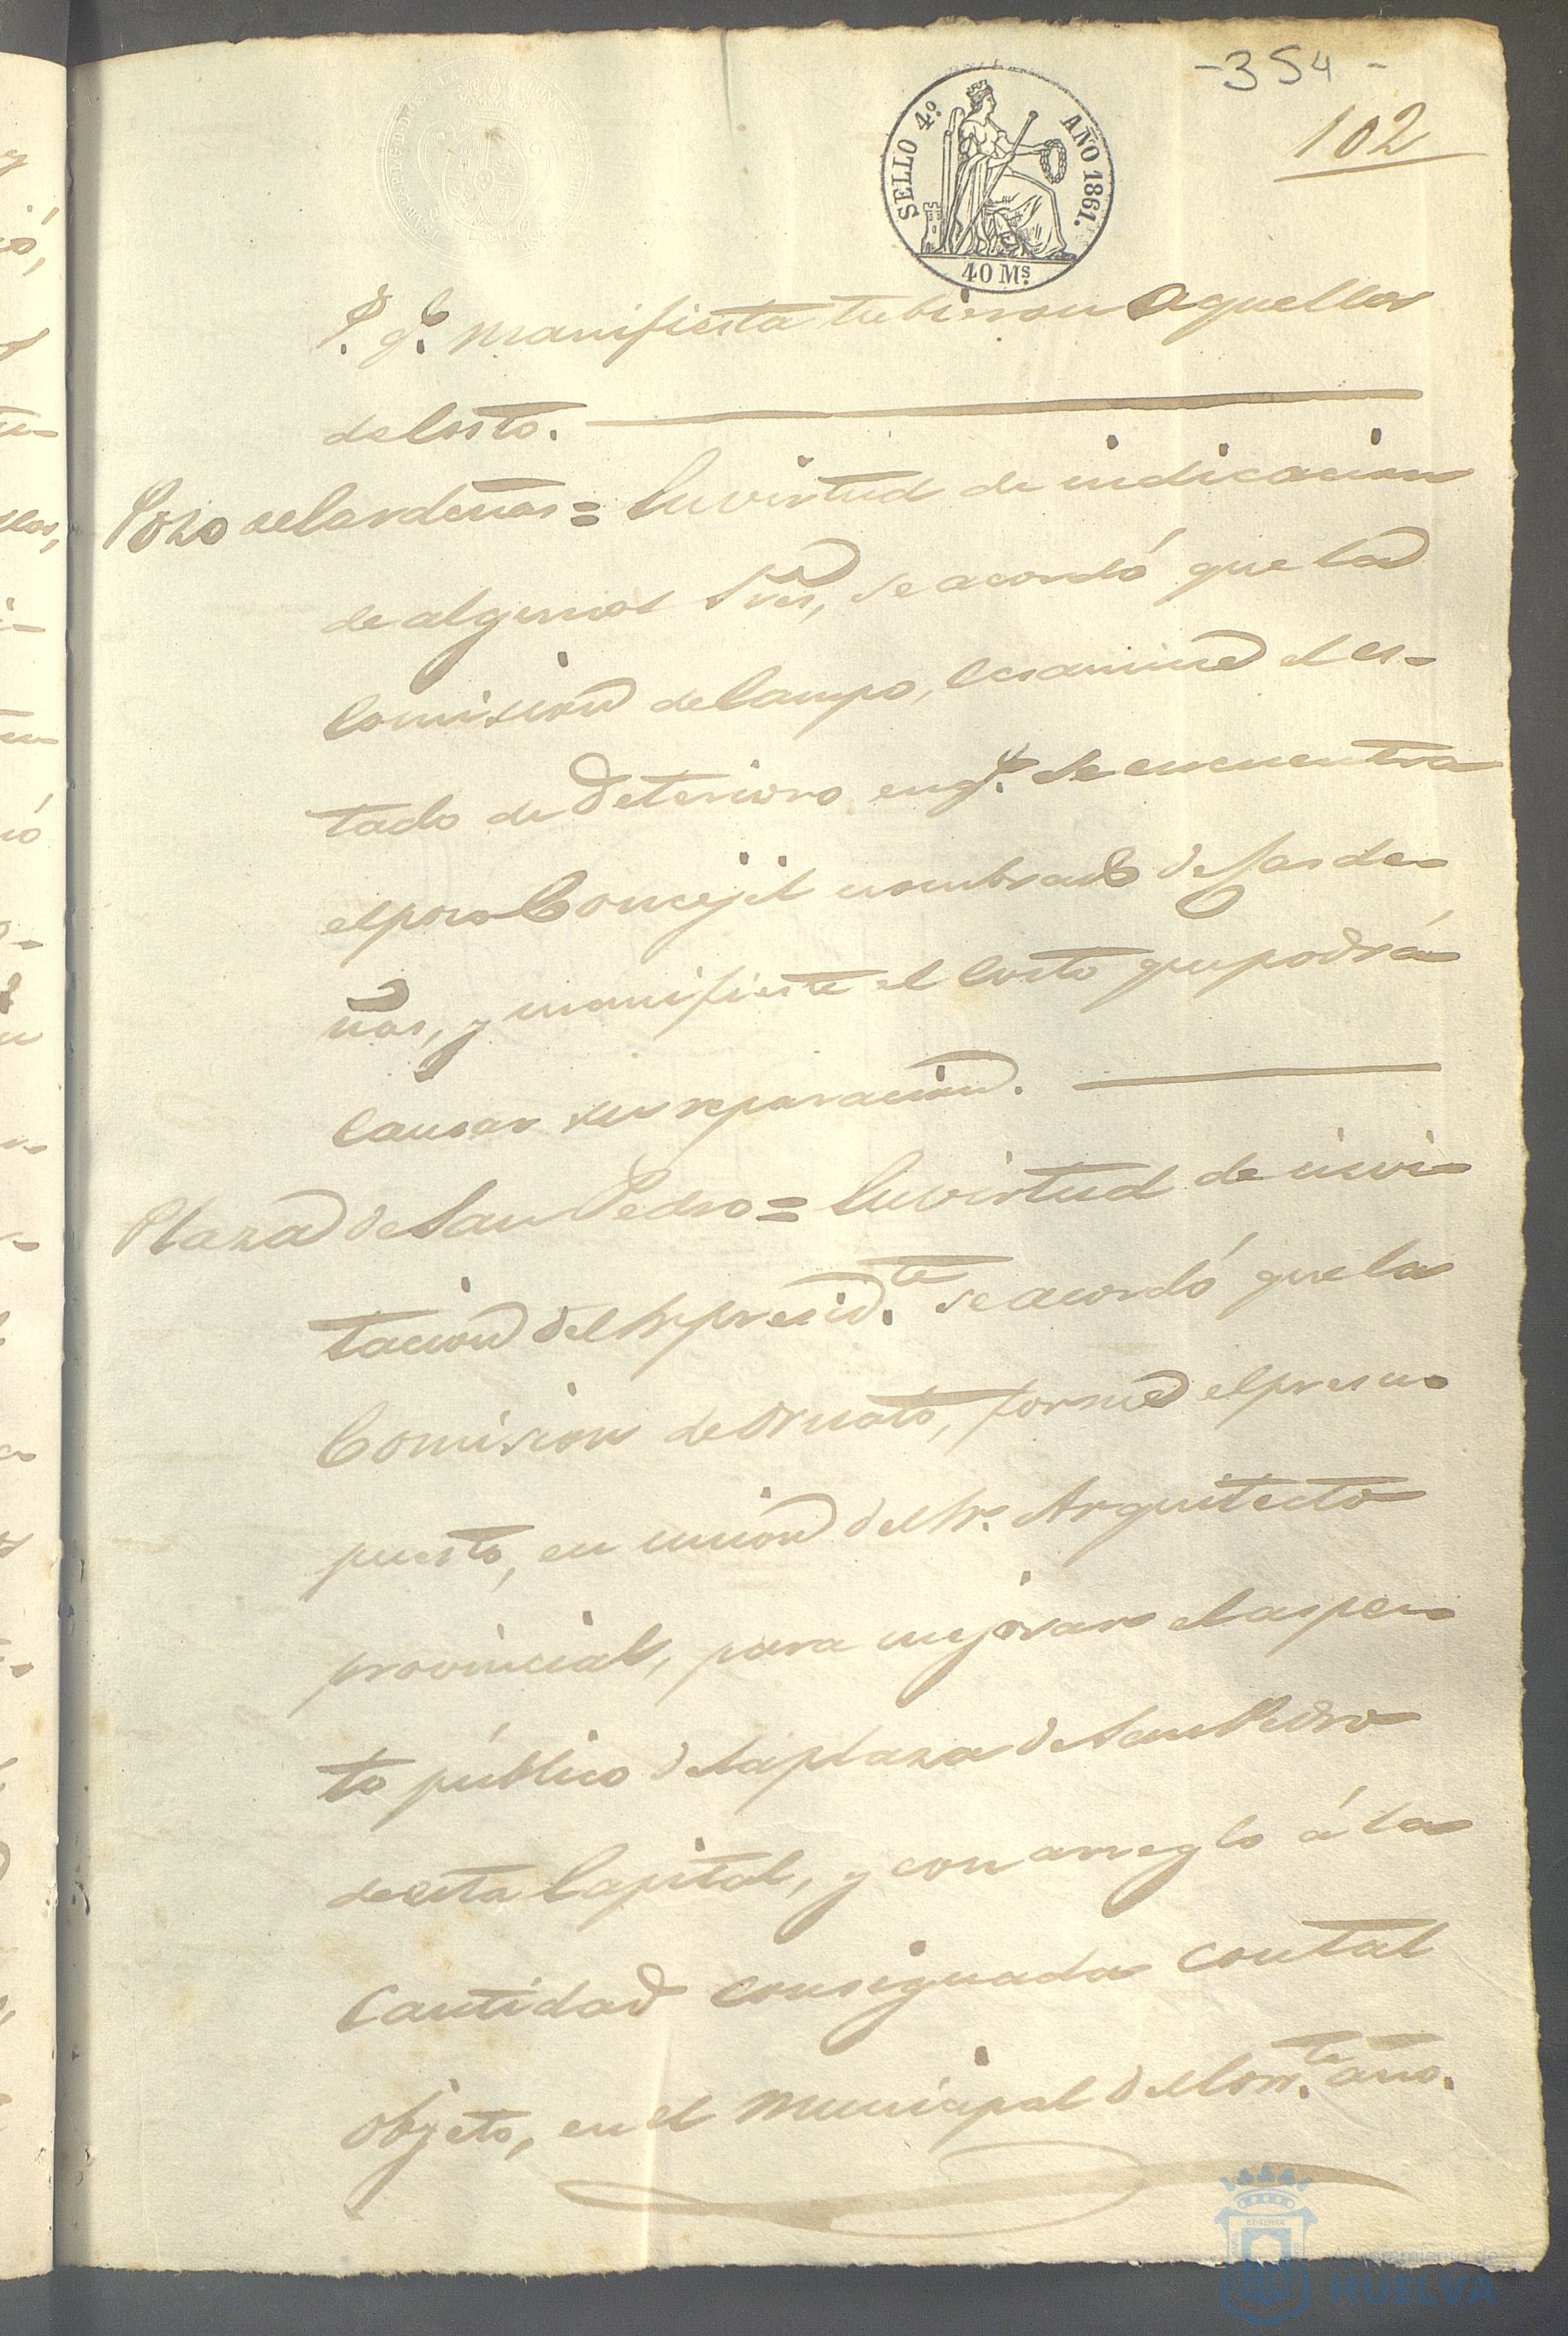 -354-
102
SELLO 4º AÑO 1861.
40 Ms.
P. qe. manifiesta tubieron aquellos
de Costo.
Pozo de Cardeñas = En virtud de indicacion
de algunos Sres, se acordó que la
Comision de Campo, ecsamine el es-
tado de deterioro en qe. se encuentra
el pozo Concejil nombrado de Carde-
ñas, y manifieste el Costo que podrá
Causar su reparacion.
Plaza de San Pedro = En virtud de invi-
tacion del Sr. presidte. se acordó que la
Comision de Ornato, forme el presu-
puesto, en union del Sr. Arquitecto
provincial, para mejorar el aspec-
to público de la plaza de San Pedro
de esta Capital, y con arreglo á la
Cantidad consignada con tal
objeto, en el municipal del Corrte. año.
Ayuntamiento de
HUELVA